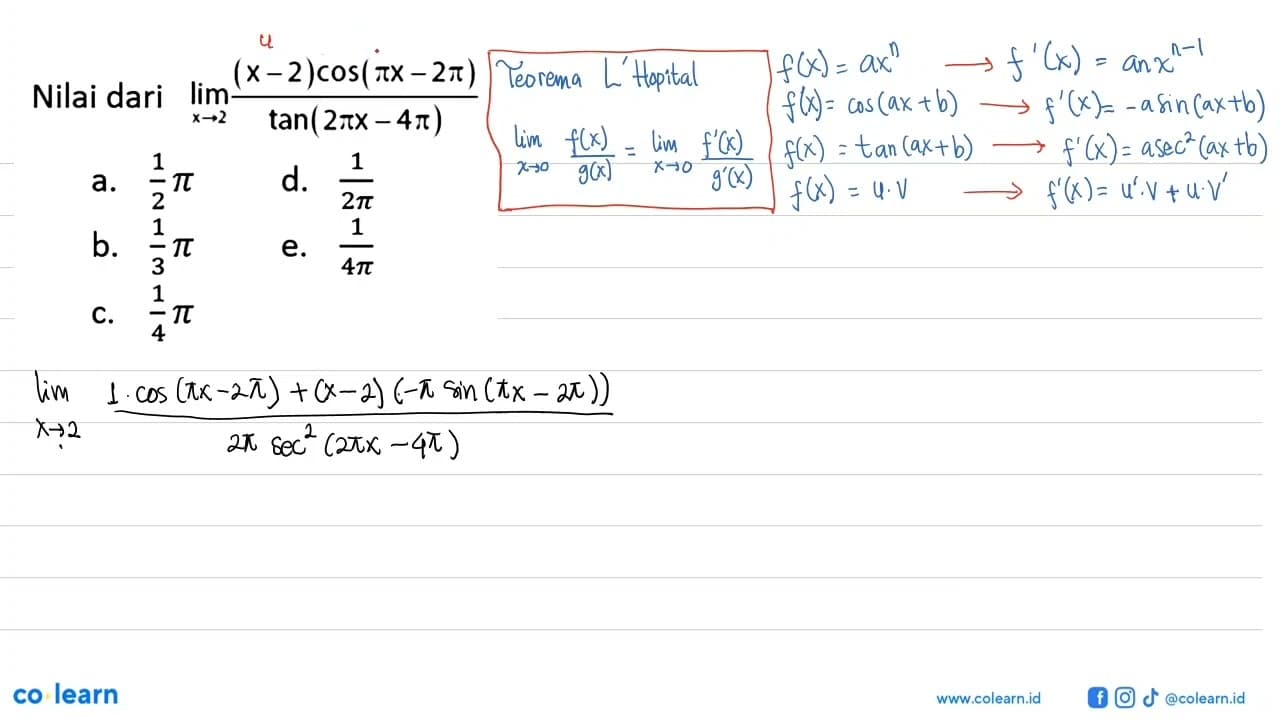 u
Nilai dari lim x→2 (x – 2)cos(πx – 2π) / tan(2πx – 4π)
a. 1/2 π d. 1/2π
b. 1/3 π e. 1/4π
c. 1/4 π
Teorema L'Hopital
lim x→0 f(x)/g(x) = lim x→0 f'(x)/g'(x)
f(x) = ax^n → f'(x) = anx^(n-1)
f(x) = cos(ax+b) → f'(x) = -a sin(ax+b)
f(x) = tan(ax+b) → f'(x) = a sec²(ax+b)
f(x) = u.v → f'(x) = u'.v + u.v'
lim x→2 1. cos (πx-2π) + (x-2) (-π sin (πx – 2π)) / 2π sec² (2πx – 4π)
co learn
www.colearn.id @colearn.id